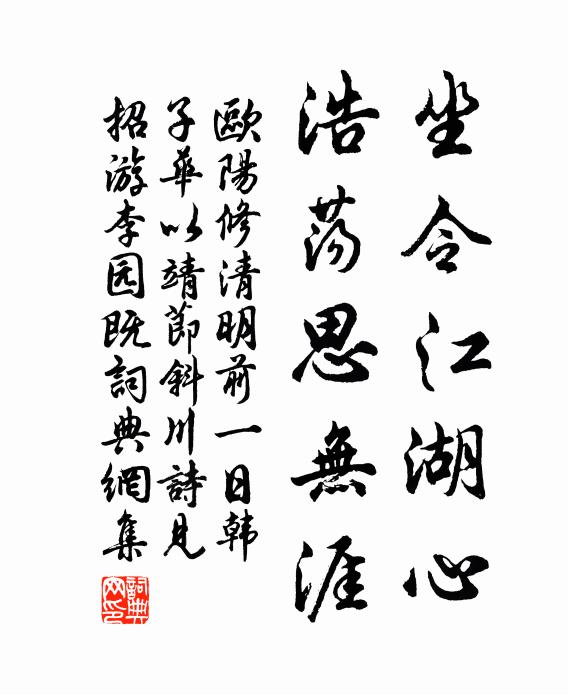 坐令江湖心
浩荡思無涯
歐陽修清明前一日韩
子華以靖節斜川詩見
招游李园既詞典網集
詞典
网印